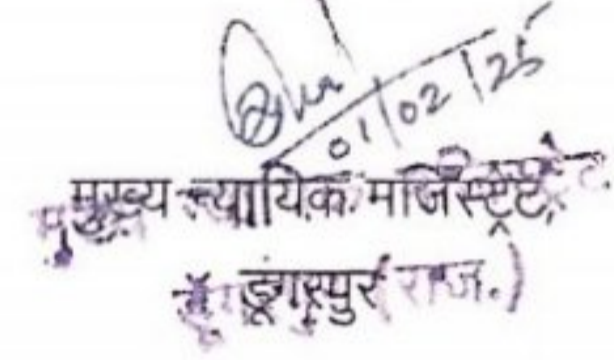 01/02/25
मुख्य न्यायिक मजिस्ट्रेट,
डूंगरपुर राज.)